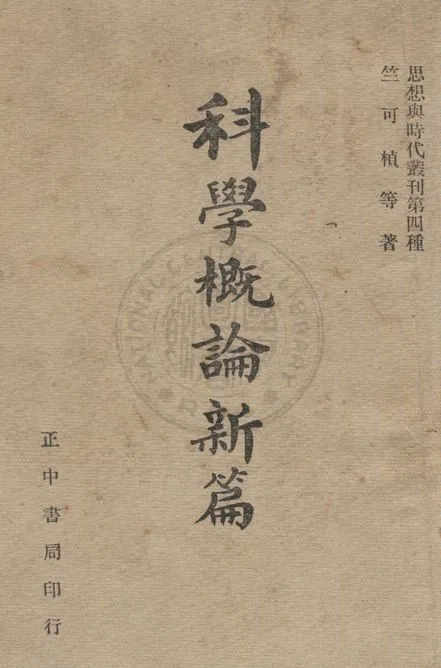 思想與時代叢刊第四種
竺可楨等著
科學概論新篇
正中書局印行
NATIONAL CENTRAL LIBRARY